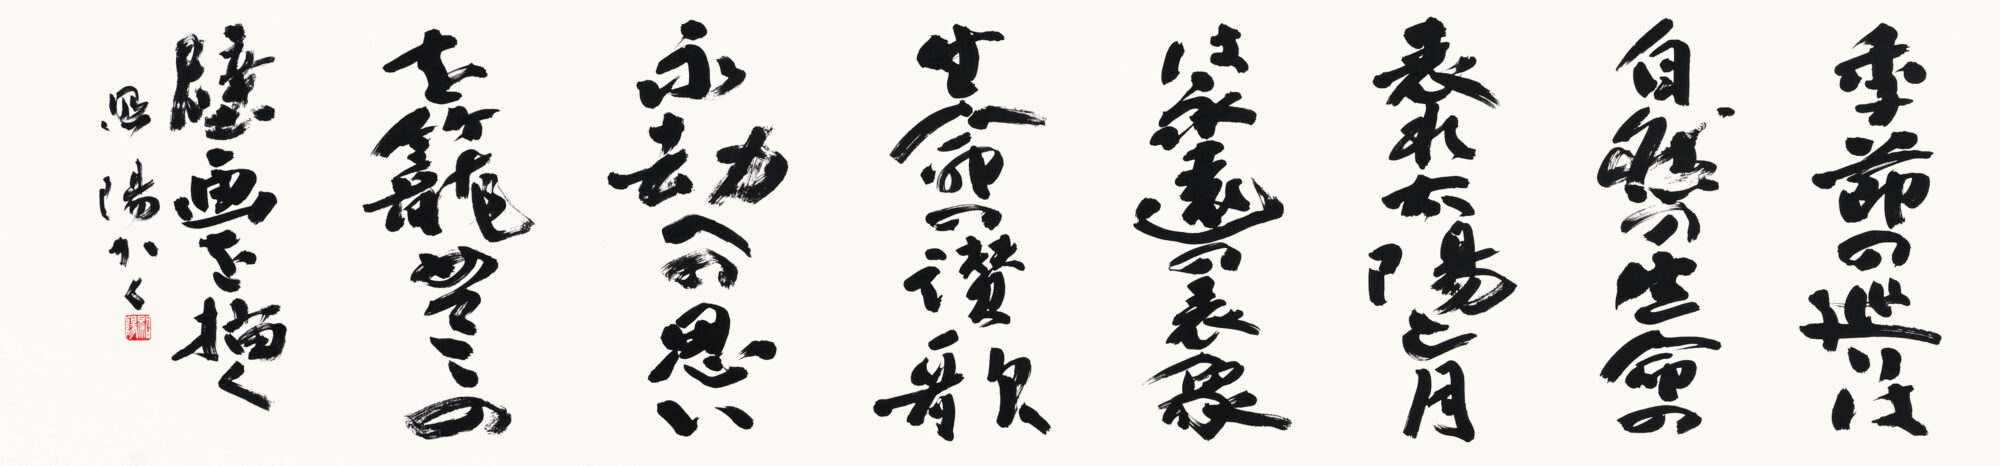 季節の巡りは
自然の生命の
表れ太陽と月
は永遠の表象
生命の讃歌
永劫への思い
を籠めてこの
壁画を描く
陽かく